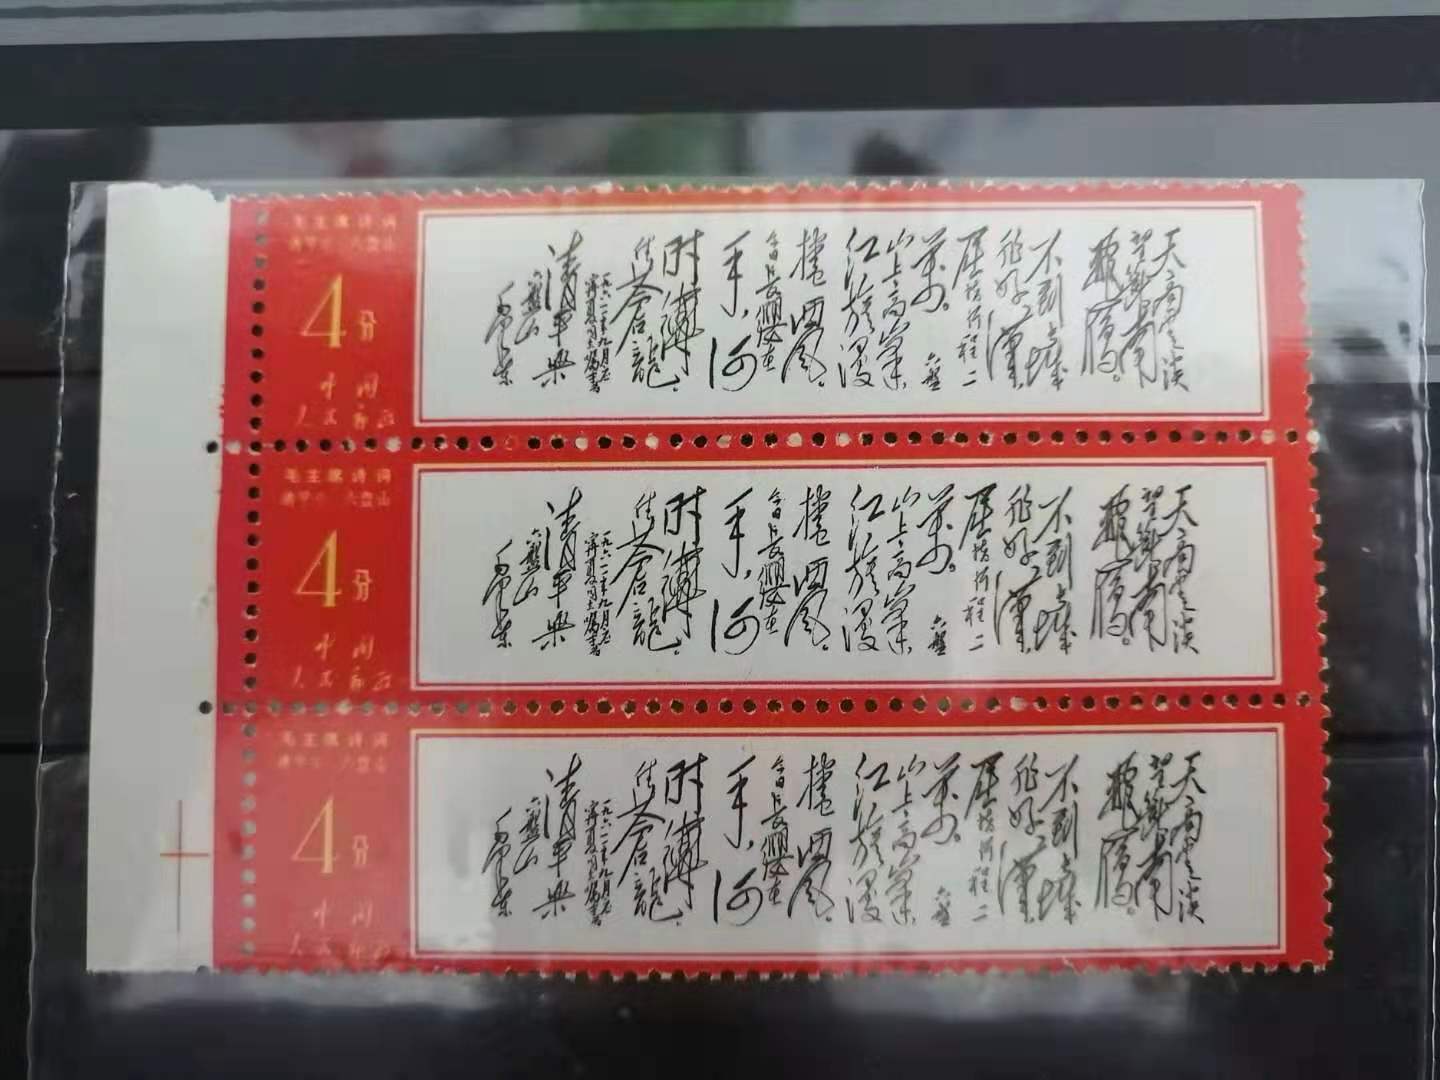 毛主席诗词
清平乐·六盘山
4分
中国
人民邮政
天高雲淡
望斷南
飛雁。
不到长城
非好漢
屈指行程二
萬。六盤
山上高峯
红旗漫
捲西风。
今日长缨在
手，何
时缚
住苍龍
一九六一年九月应
宁夏同志嘱书
清平樂
六盤山
毛泽东
毛主席诗词
清平乐·六盘山
4分
中国
人民邮政
天高雲淡
望斷南
飛雁。
不到长城
非好漢
屈指行程二
萬。六盤
山上高峯
红旗漫
捲西风。
今日长缨在
手，何
时缚
住苍龍
一九六一年九月应
宁夏同志嘱书
清平樂
六盤山
毛泽东
毛主席诗词
清平乐·六盘山
4分
中国
人民邮政
天高雲淡
望斷南
飛雁。
不到长城
非好漢
屈指行程二
萬。六盤
山上高峯
红旗漫
捲西风。
今日长缨在
手，何
时缚
住苍龍
一九六一年九月应
宁夏同志嘱书
清平樂
六盤山
毛泽东